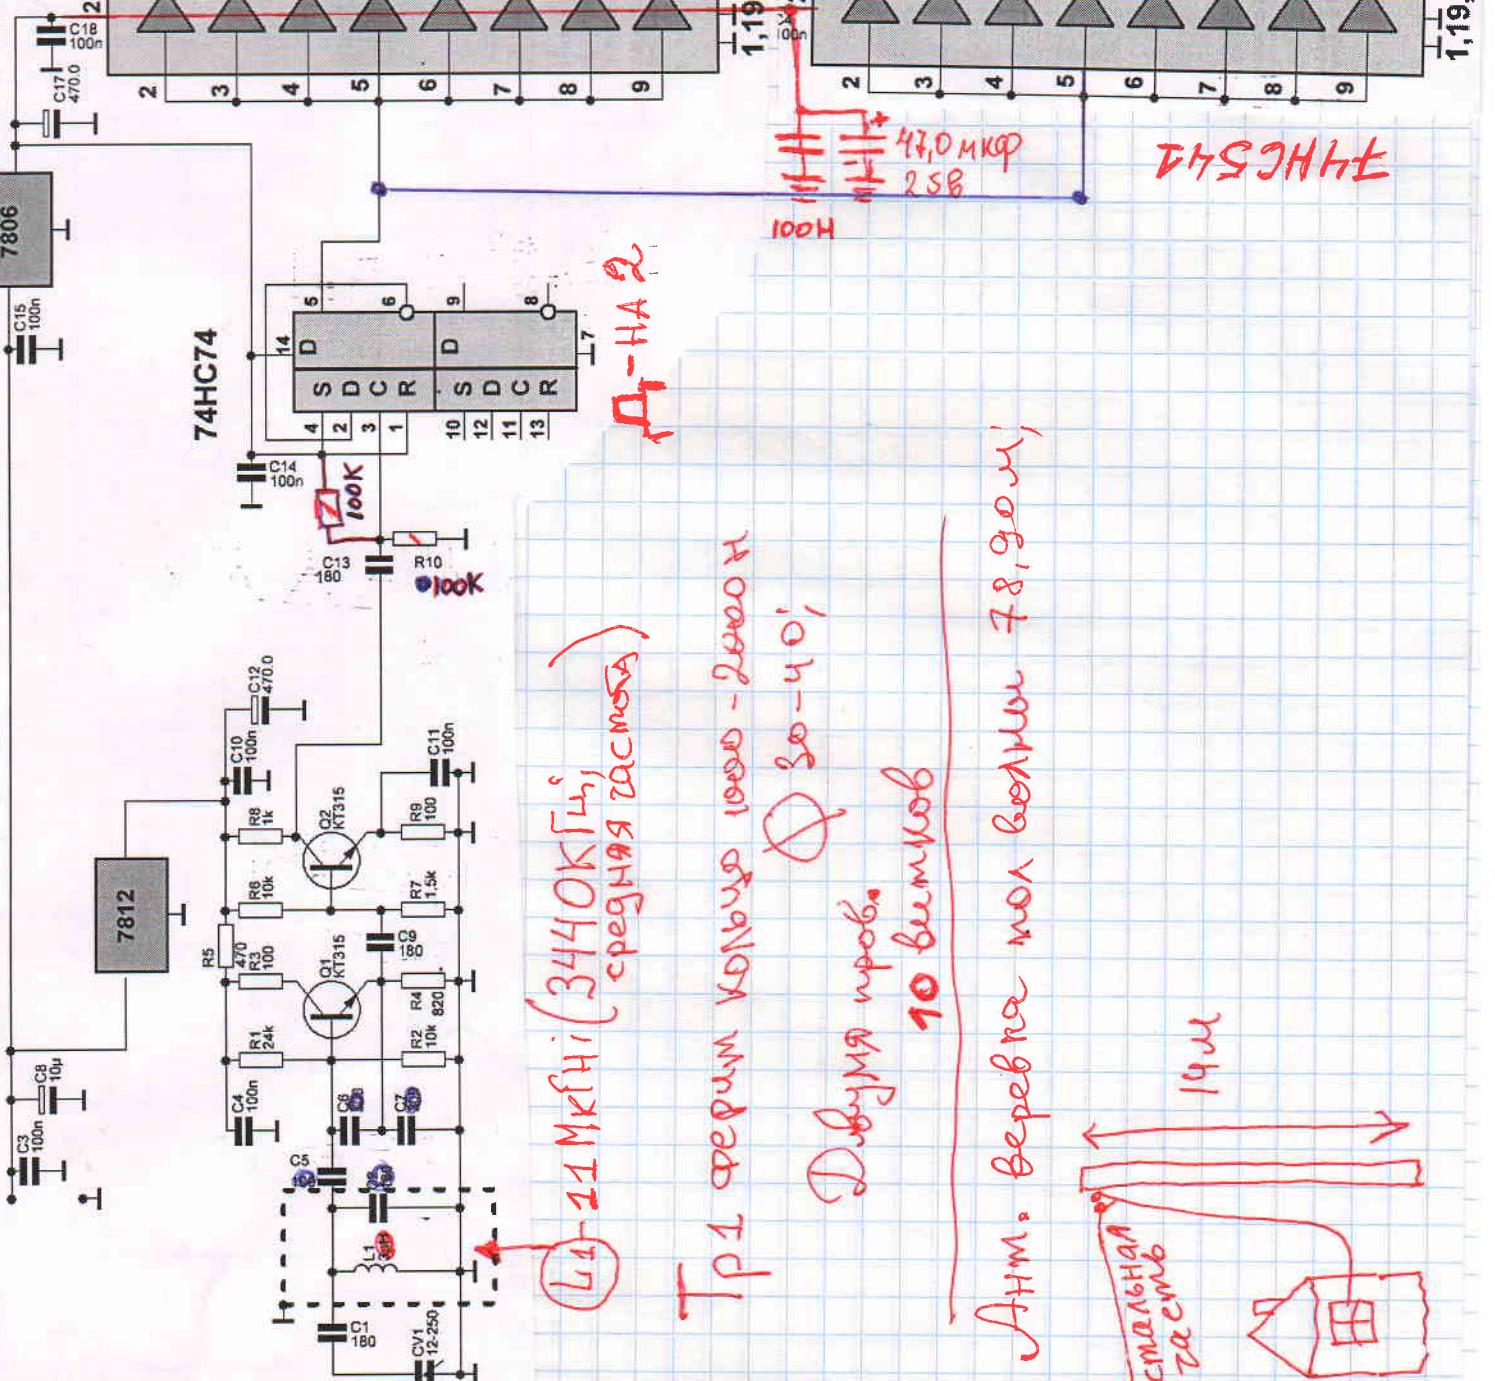 C18
100n
C17
470.0
2
3
4
5
6
7
8
9
1,19
100n
2
3
4
5
6
7
8
9
1,19
47,0 мкф
25В
100Н
74HC541
7806
C15
100n
74HC74
5
6
9
8
14
D
D
7
S
D
C
R
S
D
C
R
4
2
3
1
10
12
11
13
Д-НА 2
C14
100n
100К
C13
180
R10
100К
C12
470.0
C10
100n
C11
100n
7812
R8
1k
Q2
KT315
R9
100
R6
10k
R7
1,5k
R5
470
C9
180
R3
100
Q1
KT315
R4
820
R1
24k
R2
10k
C3
100n
C8
10µ
C4
100n
C5
C6
C7
L1
C1
180
CV1
12-250
L1-11МкГн; (3440КГц;
средняя частота)
Тр1 ферит кольцо 1000-2000Н
30-40;
Двумя пров.
10 витков
Ант. веревка пол волны 78,90м;
14м
стальная
часть